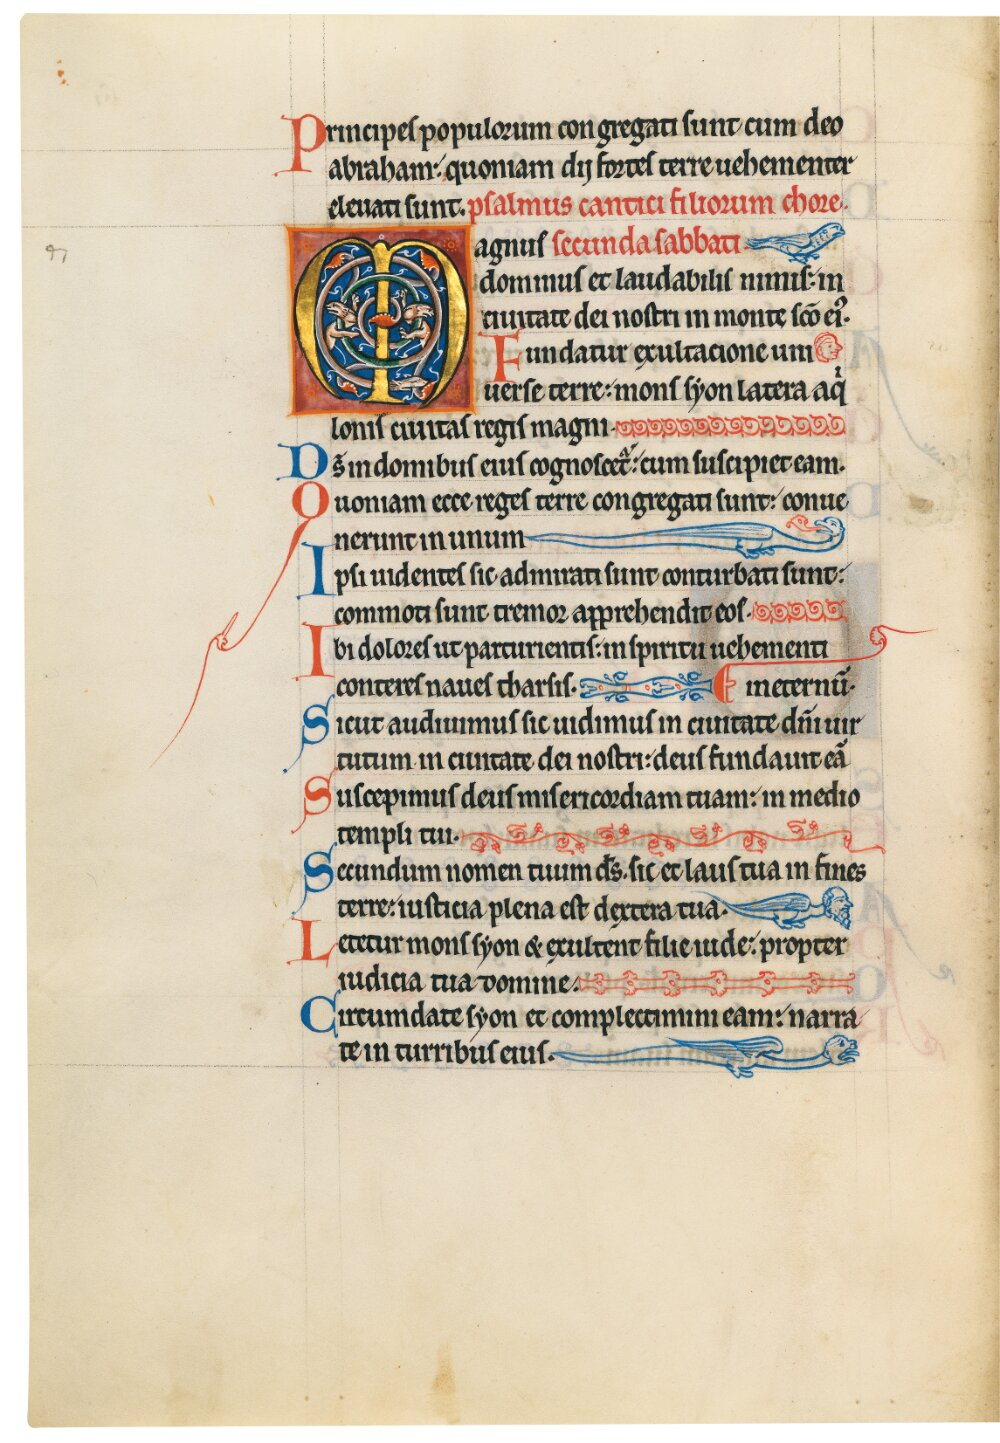 Principes populorum congregati sunt cum deo
abraham: quoniam dij fortes terre uehementer
eleuati sunt. psalmus cantici filiorum chore.
Magnus secunda sabbati
dominus et laudabilis nimis: in
ciuitate dei nostri in monte sc̄o eiꝰ.
Fundatur exultacione uni
uerse terre: mons syon latera aqͥ
lonis ciuitas regis magni.
Ds̄ in domibus eius cognoscet᷑: cum suscipiet eam.
Quoniam ecce reges terre congregati sunt: conue
nerunt in unum
Ipsi uidentes sic admirati sunt conturbati sunt:
commoti sunt tremor apprehendit eos.
Ibi dolores ut parturientis: in spiritu uehementi
conteres naues tharsis. E in eternū.
Sicut audiuimus sic uidimus in ciuitate dn̄i uir
tutum in ciuitate dei nostri: deus fundauit eā
Suscepimus deus misericordiam tuam: in medio
templi tui.
Secundum nomen tuum ds̄. sic et laus tua in fines
terre: iusticia plena est dextera tua.
Letetur mons syon & exultent filie iude: propter
iudicia tua domine.
Circumdate syon et complectimini eam: narra
te in turribus eius.